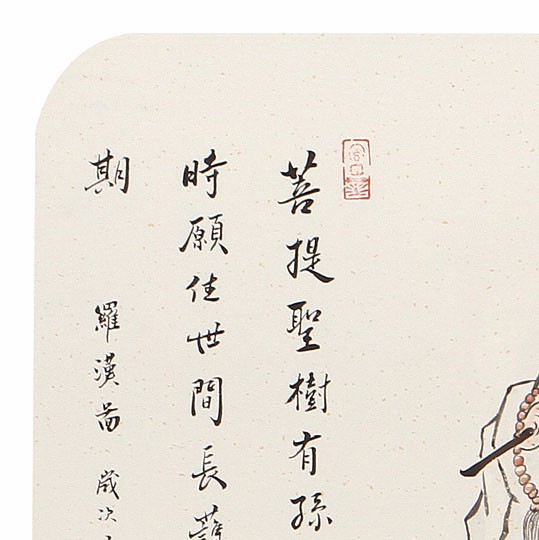 菩提聖樹有孫
時願住世間長護
期
羅漢畚 歲次